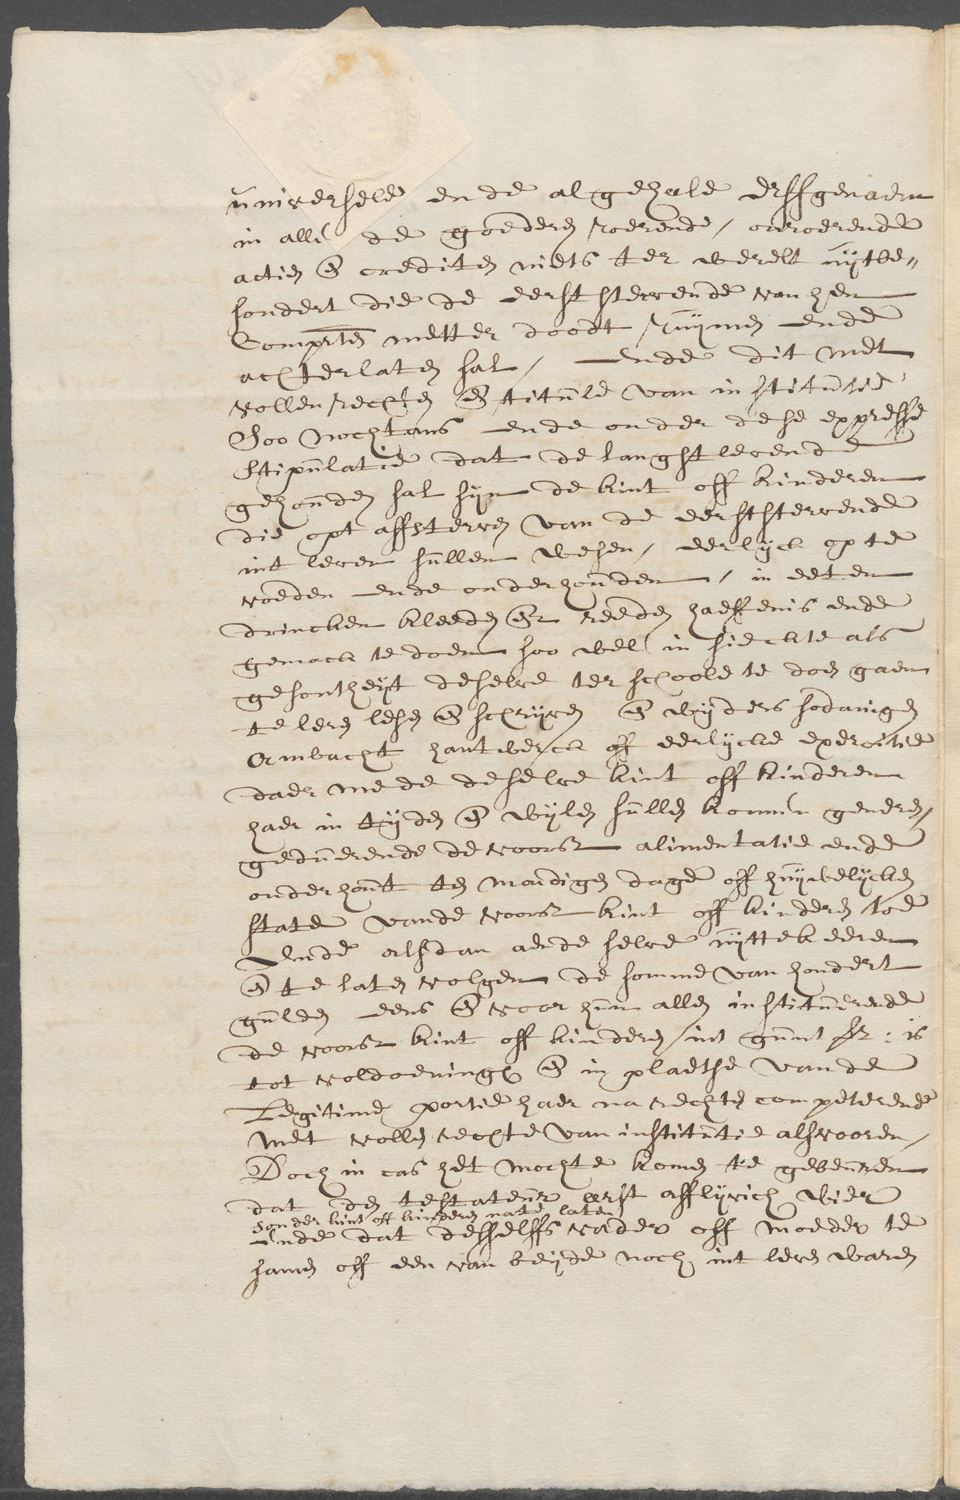 universele ende algehele erffgenaem
in alle de goederen roerende, onroerende
actien en crediten niets ter werelt uijtbe„
sondert die de eerststervende van hen
Comprten metter doodt ruijmen ende
achterlaten sal, ende dit met
vollen rechten en titule van institutie
Soo nochtans ende onder dese expresse
Stipulatie dat de langstlevende
gehouden sal sijn de kint off kinderen
die opt affsterven van de eerststervende
int leven sullen wesen, eerlijck op te
voeden ende onderhouden, in eeten
drincken kleeden en reeden haeffenis ende
gemack te doen soo wel in sieckte als
gesontheijt deselve ter schoole te doen gaen
te leren lesen en schrijven en wijders sodanigen
Ambacht hantwerck off eerlijcke exercitie
daer mede deselve kint off kinderen
haer in tijden en wijlen sullen konnen generen,
geduerende de voorsr alimentatie ende
onderhout ten mondigen dage off huijwelijcken
state vande voorsr kint off kinderen toe
Ende alsdan aende selve uijttekeeren
en te laten volgen de somme van hondert
gulden eens en voor hun allen instituerende
de voorsr kint off kinderen int gunt sr : is
tot voldoeninge en in plaetse vande
Legitime portie haer na rechten competerende
met vollen rechte van institutie alsvooren,
Doch in cas het mochte komen te gebeuren
dat den testateur eerst afflijvich wier
sonder kint off kinderen nate laten
ende dat desselffs vader off moeder te
samen off een van beijde noch int leven waren